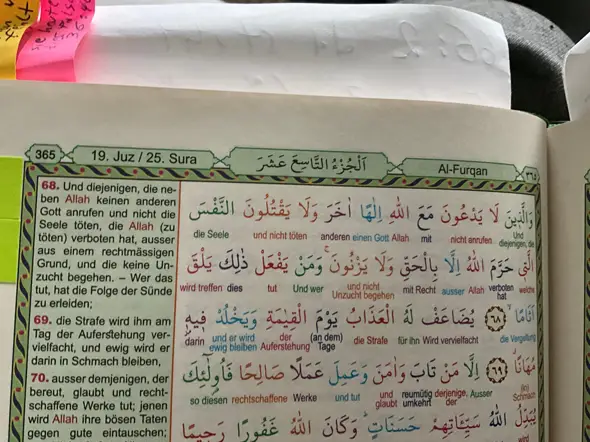 365
19. Juz / 25. Sura
اَلْجُزْءُ التَّاسِعَ عَشَرَ
Al-Furqan
٣٦٥
68. Und diejenigen, die ne-
ben Allah keinen anderen
Gott anrufen und nicht die
Seele töten, die Allah (zu
töten) verboten hat, ausser
aus einem rechtmässigen
Grund, und die keine Un-
zucht begehen. – Wer das
tut, hat die Folge der Sünde
zu erleiden;
69. die Strafe wird ihm am
Tag der Auferstehung ver-
vielfacht, und ewig wird er
darin in Schmach bleiben,
70. ausser demjenigen, der
bereut, glaubt und recht-
schaffene Werke tut; jenen
wird Allah ihre bösen Taten
gegen gute eintauschen;
وَالَّذِينَ لَا يَدْعُونَ مَعَ اللّٰهِ اِلٰهًا اٰخَرَ وَلَا يَقْتُلُونَ النَّفْسَ
die Seele und nicht töten anderen einen Gott Allah mit nicht anrufen Und diejenigen, die
الَّتِي حَرَّمَ اللّٰهُ اِلَّا بِالْحَقِّ وَلَا يَزْنُونَ وَمَنْ يَفْعَلْ ذٰلِكَ يَلْقَ
wird treffen dies tut Und wer und nicht Unzucht begehen mit Recht ausser Allah verboten hat welche
اَثَامًا ﴿٦٨﴾ يُضَاعَفْ لَهُ الْعَذَابُ يَوْمَ الْقِيٰمَةِ وَيَخْلُدْ فِيهِ
darin und er wird ewig bleiben der Auferstehung (an dem) Tage die Strafe für ihn Wird vervielfacht die Vergeltung
مُهَانًا ﴿٦٩﴾ اِلَّا مَنْ تَابَ وَاٰمَنَ وَعَمِلَ عَمَلًا صَالِحًا فَاُولٰٓئِكَ
so diesen rechtschaffene Werke und tut und glaubt reumütig umkehrt derjenige, der Ausser (in) Schmach
يُبَدِّلُ اللّٰهُ سَيِّـَٔاتِهِمْ حَسَنَاتٍ وَكَانَ اللّٰهُ غَفُورًا رَحِيمًا